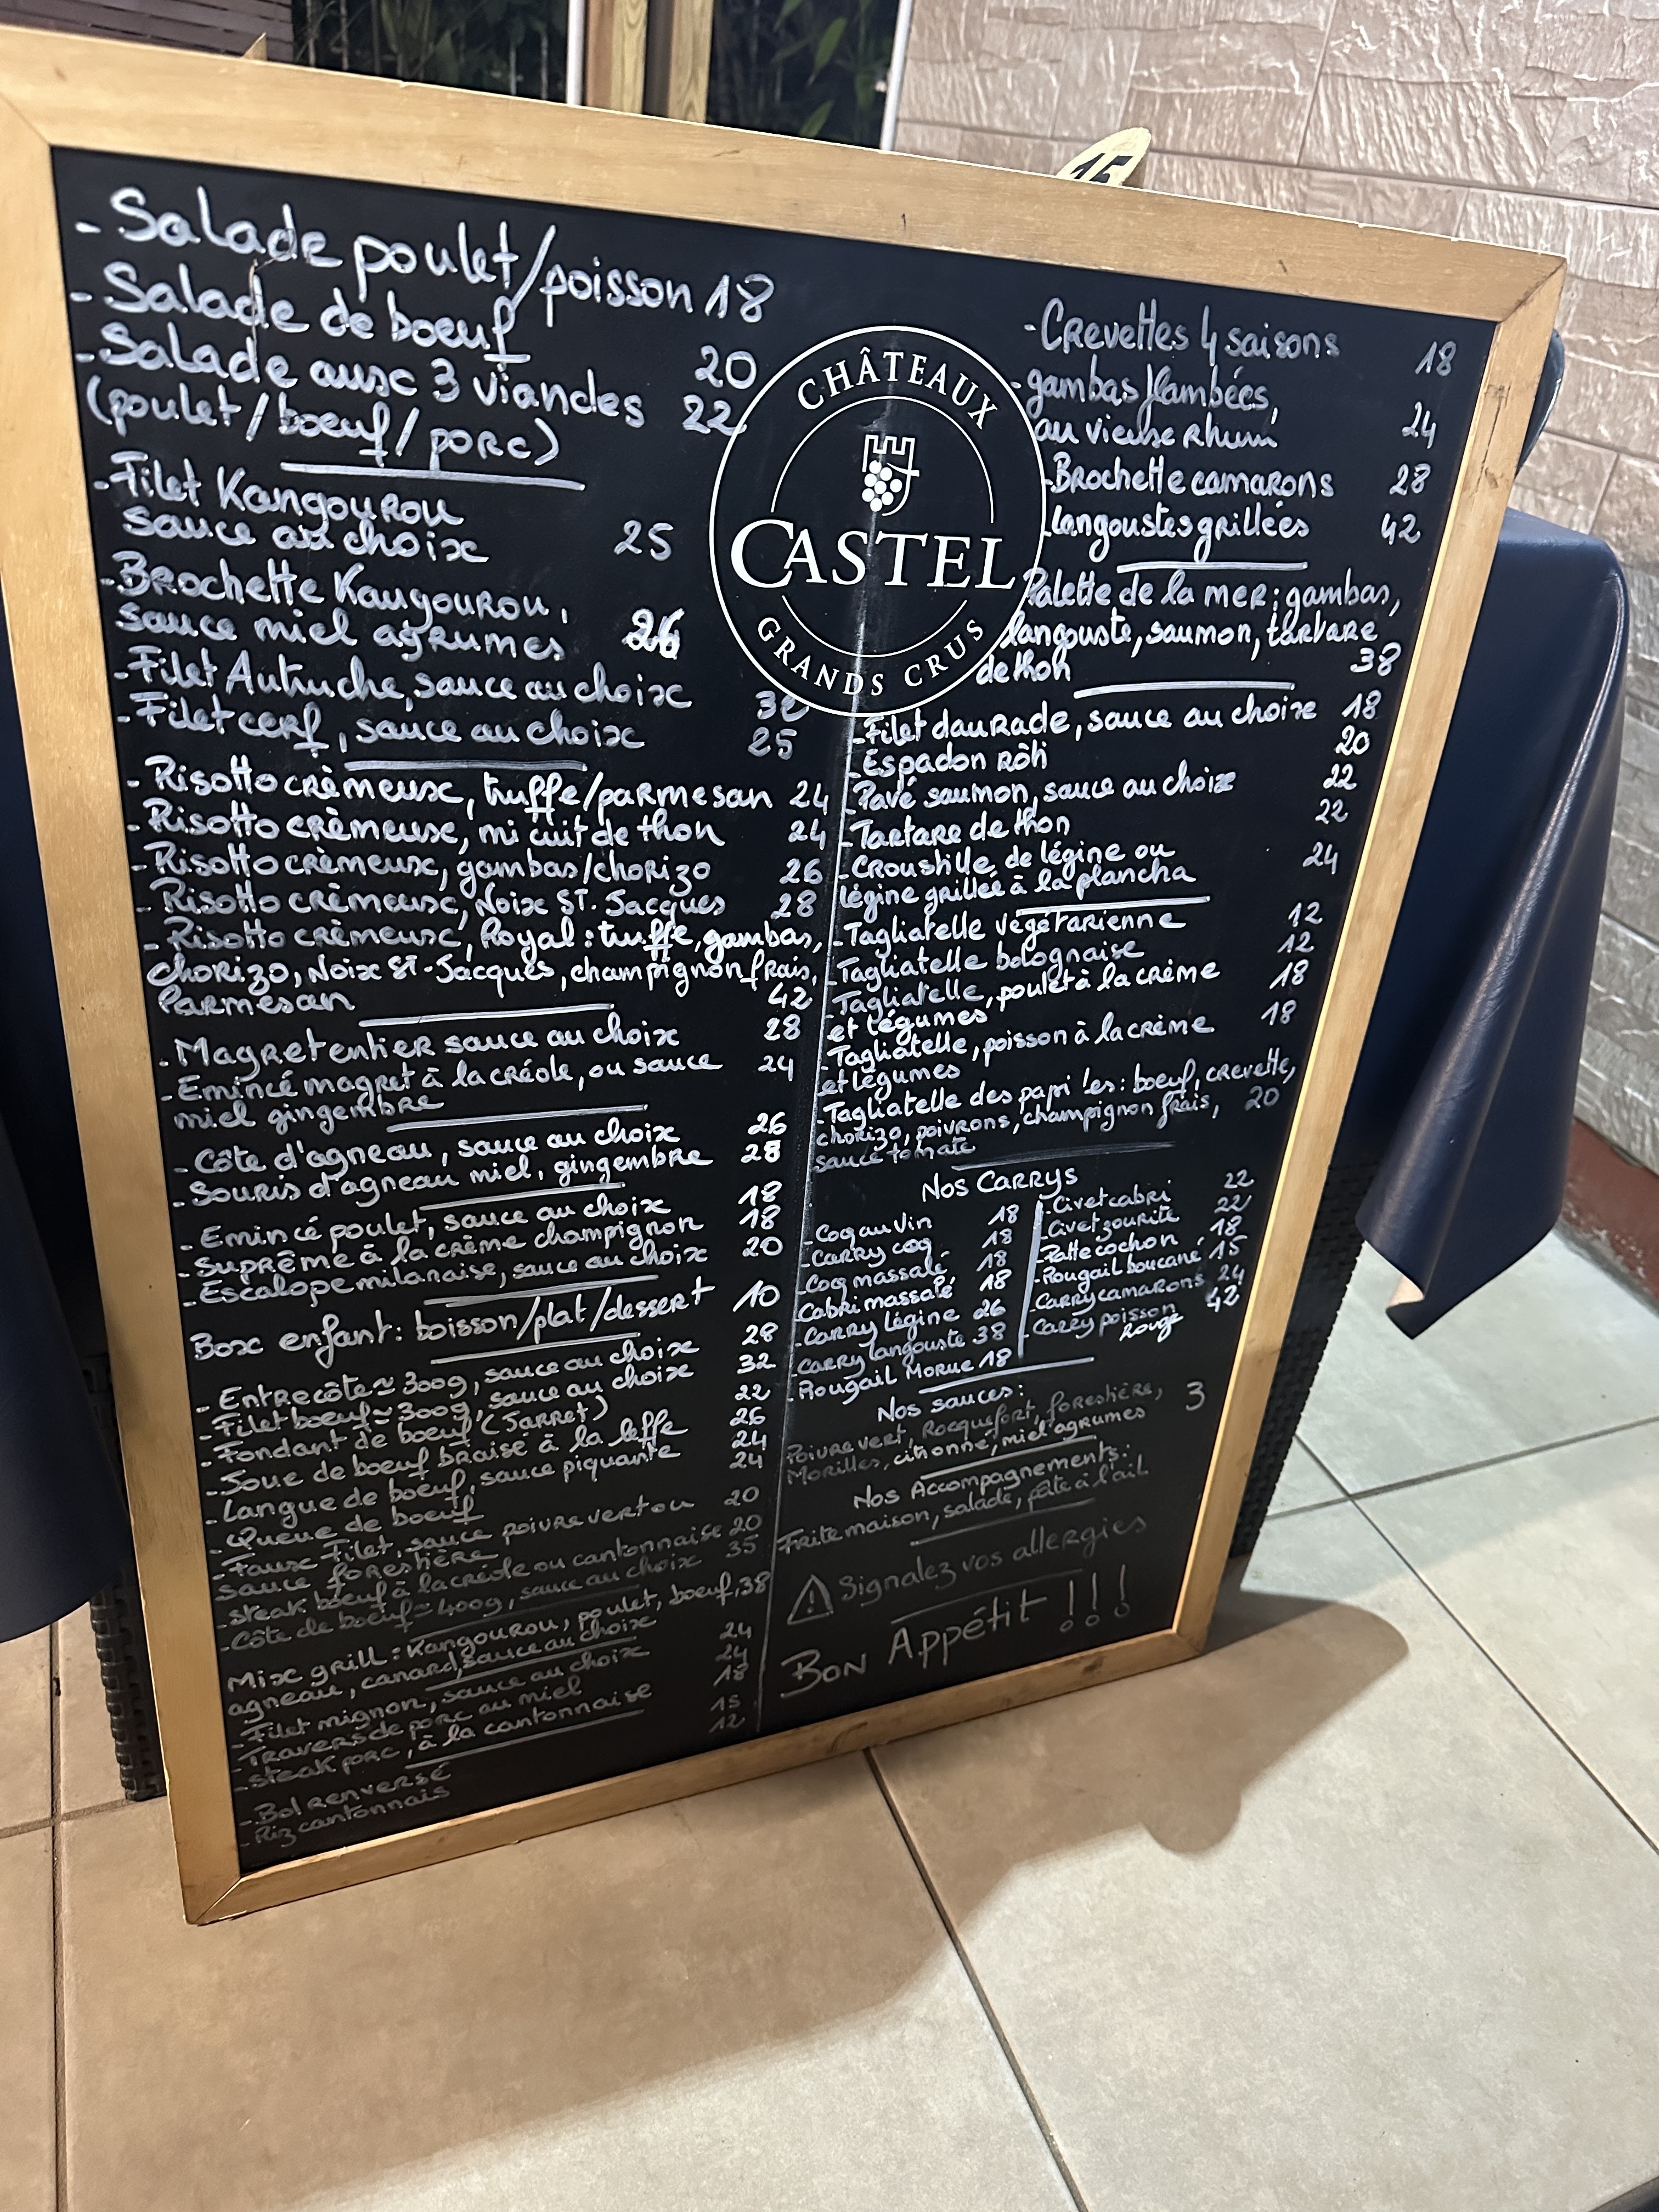 15
- Salade poulet/poisson 18
- Salade de boeuf 20
- Salade aux 3 viandes 22
(poulet/boeuf/porc)
- Filet Kangourou
sauce au choix 25
- Brochette Kangourou,
sauce miel agrumes 26
- Filet Autruche, sauce au choix
- Filet cerf, sauce au choix 25
- Risotto crèmeux, truffe/parmesan 24
- Risotto crèmeux, mi cuit de thon 24
- Risotto crèmeux, gambas/chorizo 26
- Risotto crèmeux, Noix ST. Jacques 28
- Risotto crèmeux, Royal : truffe, gambas,
chorizo, Noix ST-Jacques, champignon frais,
Parmesan 42
- Magret entier sauce au choix 28
- Emincé magret à la créole, ou sauce 24
miel gingembre
- Côte d'agneau, sauce au choix 26
- Souris d'agneau miel, gingembre 28
- Emincé poulet, sauce au choix 18
- Suprême à la crème champignon 18
- Escalope milanaise, sauce au choix 20
Box enfant : boisson/plat/dessert 10
- Entrecôte ≃ 300g, sauce au choix 28
- Filet boeuf ≃ 300g, sauce au choix 32
- Fondant de boeuf (Jarret) 22
- Joue de boeuf braisé à la leffe 26
- Langue de boeuf, sauce piquante 24
- Queue de boeuf 24
- Faux Filet, sauce poivre vert ou 20
sauce forestière
- steak boeuf à la créole ou cantonnaise 20
- Côte de boeuf ≃ 400g, sauce au choix 35
Mix grill : Kangourou, poulet, boeuf, 38
agneau, canard, sauce au choix
- Filet mignon, sauce au choix 24
- Travers de porc au miel 24
- steak porc, à la cantonnaise 18
- Bol renversé 15
- Riz cantonnais 12
CHÂTEAUX
CASTEL
GRANDS CRUS
- Crevettes 4 saisons 18
- gambas flambées,
au vieux Rhum 24
- Brochette camarons 28
- langoustes grillées 42
Palette de la mer : gambas,
langouste, saumon, tartare
de thon 38
- Filet daurade, sauce au choix 18
- Espadon rôti 20
- Pavé saumon, sauce au choix 22
- Tartare de thon 22
- Croustille de légine ou 24
légine grillée à la plancha
- Tagliatelle végétarienne 12
- Tagliatelle bolognaise 12
- Tagliatelle, poulet à la crème 18
et légumes
- Tagliatelle, poisson à la crème 18
et légumes
- Tagliatelle des papi les : boeuf, crevette,
chorizo, poivrons, champignon frais, 20
sauce tomate
Nos Carrys
- Coq au vin 18
- Carry coq 18
- Coq massalé 18
- Cabri massalé 18
- Carry légine 26
- Carry langouste 38
- Rougail Morue 18
- Civet cabri 22
- Civet zourite 22
- Patte cochon 18
- Rougail boucané 15
- Carry camarons 24
- Carry poisson 42
Rouge
Nos sauces :
Poivre vert, Rocquefort, forestière, 3
Morilles, citronné, miel agrumes
Nos Accompagnements :
Frite maison, salade, pâte à l'ail
Signalez vos allergies
Bon Appétit !!!